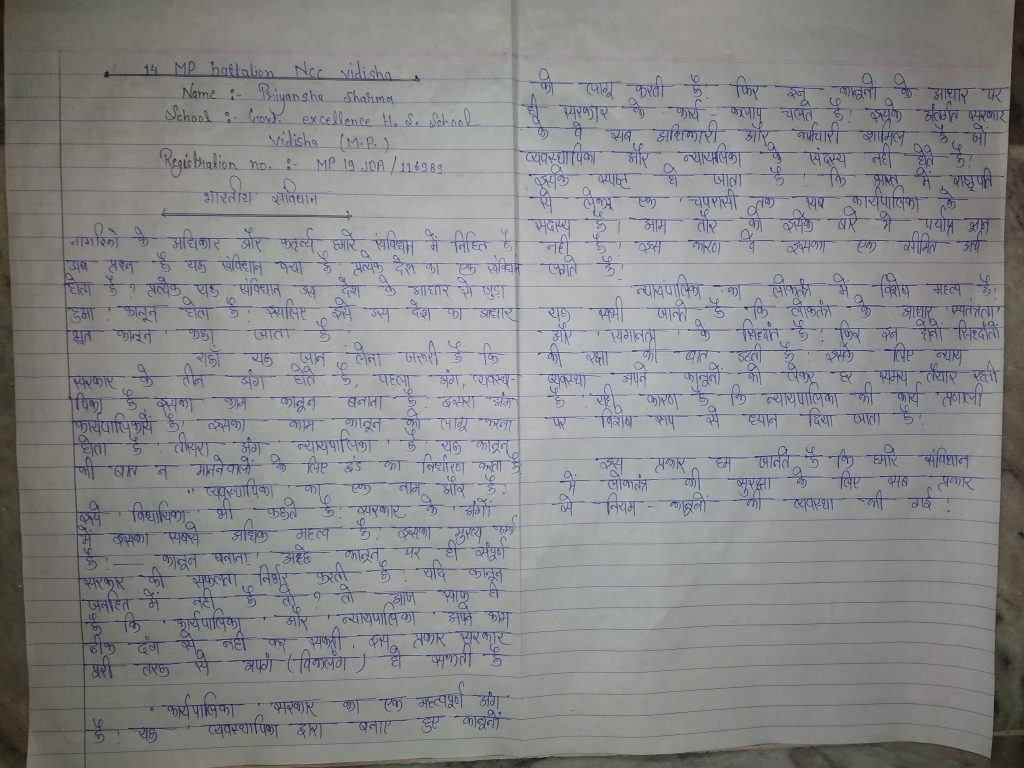 14 MP battalion Ncc vidisha
Name :- Priyanshu sharma
School :- Govt. excellence H. S. School
Vidisha (M.P.)
Registration no. :- MP 19 JDA / 116989
भारतीय संविधान
नागरिको के अधिकार और कर्तव्य हमारे संविधान में निहित है
अब प्रश्न है यह संविधान क्या है प्रत्येक देश का एक संविधान
होता है? प्रत्येक यह संविधान उस देश के आधार से जुड़ा
हुआ कानून होता है इसलिए इसे उस देश का आधार
भूत कानून कहा जाता है
यहाँ यह जान लेना जरूरी है कि
सरकार के तीन अंग होते है, पहला अंग, व्यवस्था-
पिका है इसका काम कानून बनाना है दूसरा अंग
कार्यपालिका है! इसका काम कानून को लागू करना
होता है तीसरा अंग न्यायपालिका है यह कानून
की बात न मानने वालों के लिए दंड का निर्धारण करता है
" व्यवस्थापिका का एक नाम और है?
इसे 'विधायिका' भी कहते है सरकार के अंगों
में इसका सबसे अधिक महत्व है इसका मुख्य कार्य
है! — कानून बनाना अच्छे कानून पर ही संपूर्ण
सरकार की सफलता निर्भर करती है यदि कानून
जनहित में नही है तो? तो आप साफ ही
है कि 'कार्यपालिका' और 'न्यायपालिका' अपने काम
ठीक ढंग से नही कर सकती इस प्रकार सरकार
पूरी तरह से अपंग (विकलांग) हो सकती है
" कार्यपालिका सरकार का एक महत्वपूर्ण अंग
है! यह व्यवस्थापिका द्वारा बनाए हुए कानूनों
को लागू करती है. फिर इन्हीं कानूनों के आधार पर
ही सरकार के कार्य-कलाप चलते है! इसके अंतर्गत सरकार
के वे सब अधिकारी और कर्मचारी शामिल है जो
व्यवस्थापिका और न्यायपालिका के सदस्य नही होते है!
इससे स्पष्ट हो जाता है! कि भारत में राष्ट्रपति
से लेकर एक चपरासी तक सब कार्यपालिका के
सदस्य है! आम तौर को इसके बारे में पर्याप्त ज्ञान
नही है! इस कारण वे इसका एक सीमित अर्थ
लगाते है!
न्यायपालिका का लोकतंत्र में विशेष महत्व है!
यह सभी जानते है कि लोकतंत्र के आधार 'स्वतंत्रता'
और 'समानता' के सिद्धांत है! फिर इन दोनो सिद्धांतो
की रक्षा की बात उठती है! इसके लिए न्याय
व्यवस्था अपने कानूनों को लेकर हर समय तैयार रहती
है यही कारण है कि न्यायपालिका की कार्य प्रणाली
पर विशेष रूप से ध्यान दिया जाता है!
इस प्रकार हम जानते है कि हमारे संविधान
में लोकतंत्र की सुरक्षा के लिए सब प्रकार
से नियम-कानूनों की व्यवस्था की गई!